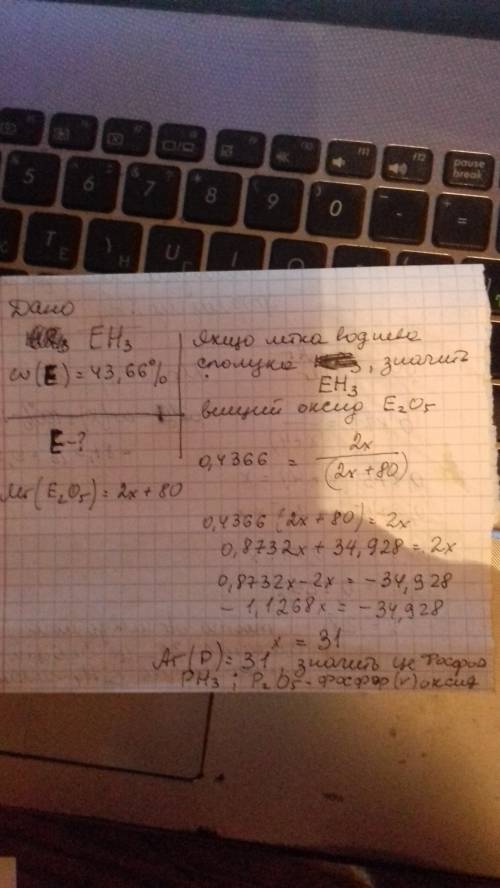 5
6
7
8
9
0
-
+
=
F11
F12
pause
break
T
E
U
I
Дано
EH₃
w(E) = 43,66%
E - ?
Mr(E₂O₅) = 2x + 80
Якщо летка воднева
сполука EH₃, значить
вищий оксид E₂O₅
0,4366 = 2x / (2x + 80)
0,4366 (2x + 80) = 2x
0,8732x + 34,928 = 2x
0,8732x - 2x = -34,928
- 1,1268x = -34,928
x = 31
Ar(P) = 31, значить це Фосфор
PH₃ ; P₂O₅ - фосфор (v) оксид